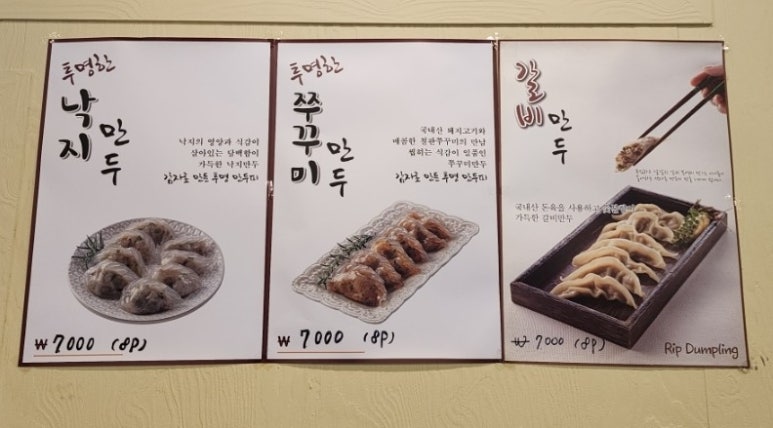 투명한
낙지
만두
낙지의 영양과 식감이
살아있는 담백함이
가득한 낙지만두
감자로 만든 투명 만두피
₩ 7000 (8P)
투명한
쭈꾸미
만두
국내산 돼지고기와
매콤한 철판쭈꾸미의 만남
씹히는 식감이 일품인
쭈꾸미만두
감자로 만든 투명 만두피
₩ 7000 (8P)
갈비
만두
국내산 돈육을 사용하고
가득한 갈비만두
₩ 7000 (8P)
Rip Dumpling